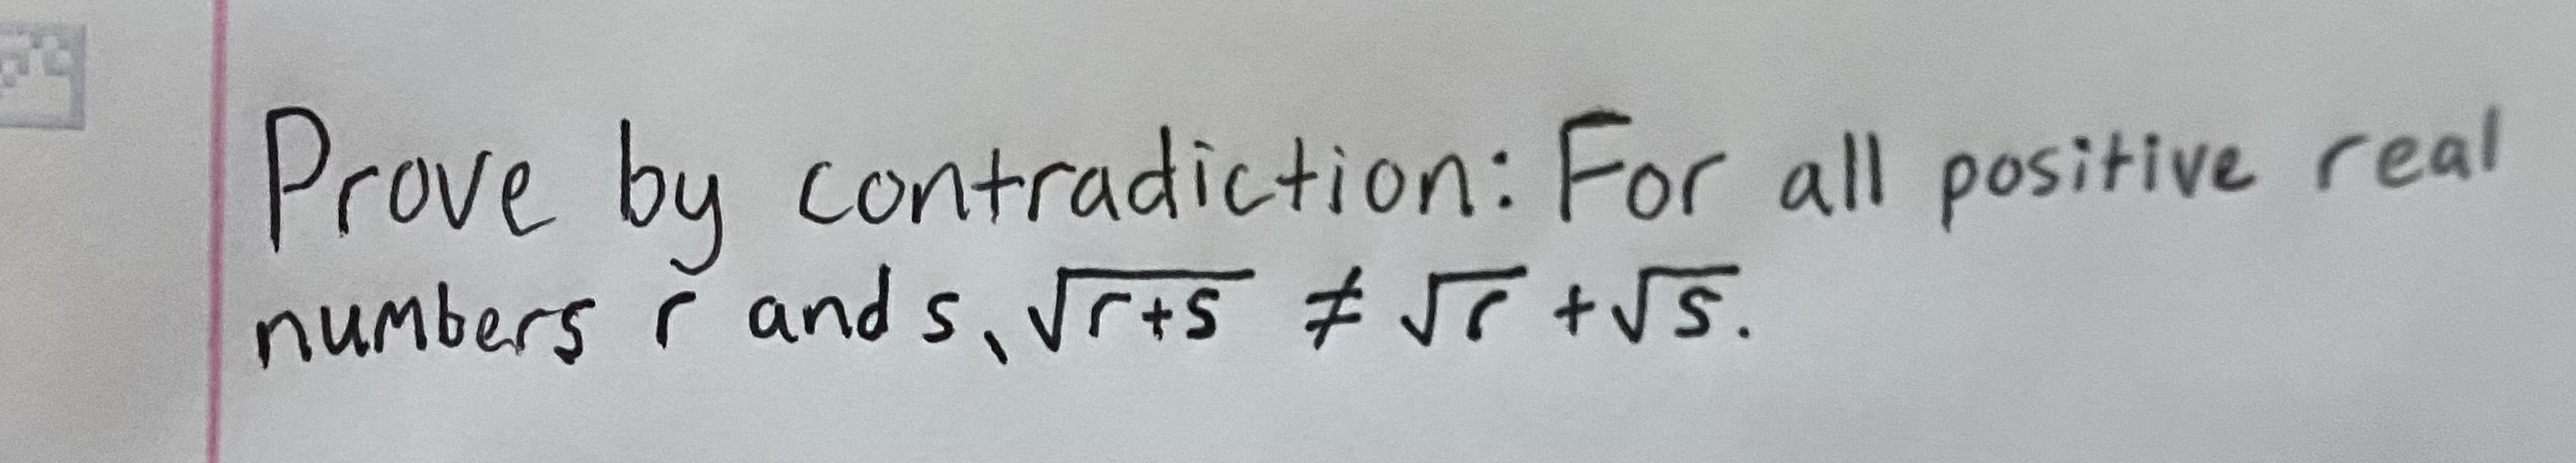 Prove by contradiction: For all positive real
numbers r and s, √(r+s) ≠ √r + √s.